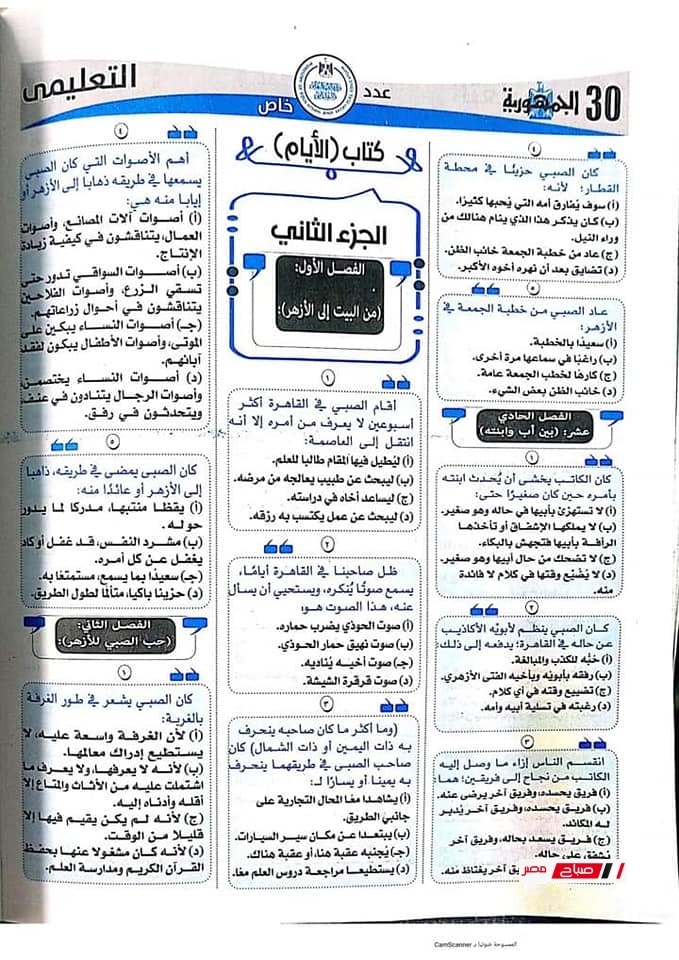 30 الجمهورية
عدد
خاص
التعليمى
٤
كان الصبي حزينًا في محطة
القطار؛ لأنه:
(أ) سوف يُفارق أمه التي يُحبها كثيرًا.
(ب) كان يذكر هذا الذي ينام هنالك من
وراء النيل.
(ج) عاد من خطبة الجمعة خائب الظن.
(د) تضايق بعد أن نهره أخوه الأكبر.
٥
عاد الصبي من خطبة الجمعة في
الأزهر:
(أ) سعيدًا بالخطبة.
(ب) راغبًا في سماعها مرة أخرى.
(ج) كارهًا لخطب الجمعة عامة.
(د) خائب الظن بعض الشيء.
الفصل الحادي
عشر: (بين أب وابنته)
١
كان الكاتب يخشى أن يُحدث ابنته
بأمره حين كان صغيرًا حتى:
(أ) لا تستهزئ بأبيها في حاله وهو صغير.
(ب) لا يملكها الإشفاق أو تأخذها
الرأفة بأبيها فتجهش بالبكاء.
(ج) لا تضحك من حال أبيها وهو صغير.
(د) لا يُضيّع وقتها في كلام لا فائدة
منه.
٢
كان الصبي ينظم لأبويْه الأكاذيب
عن حاله في القاهرة؛ يدفعه إلى ذلك:
(أ) حُبُّه للكذب والمبالغة.
(ب) رفقه بأبويْه وبأخيه الفتى الأزهري.
(ج) تضييع وقته في أي كلام.
(د) رغبته في تسلية أبيه وأمه.
٣
انقسم الناس إزاء ما وصل إليه
الكاتب من نجاح إلى فريقين؛ هما:
(أ) فريق يحسده، وفريق آخر يرضى عنه.
(ب) فريق يحسده، وفريق آخر يُدبر
له المكائد.
(ج) فريق يسعد بحاله، وفريق آخر
يُشفق على حاله.
آخر يغتاظ منه.
كتاب (الأيام)
الجزء الثاني
الفصل الأول:
(من البيت إلى الأزهر):
١
أقام الصبي في القاهرة أكثر
أسبوعين لا يعرف من أمره إلا أنه
انتقل إلى العاصمة:
(أ) ليُطيل فيها المقام طالبا للعلم.
(ب) ليبحث عن طبيب يعالجه من مرضه.
(ج) ليساعد أخاه في دراسته.
(د) ليبحث عن عمل يكتسب به رزقه.
٢
ظل صاحبنا في القاهرة أيامًا،
يسمع صوتًا يُنكره، ويستحيي أن يسأل
عنه، هذا الصوت هو:
(أ) صوت الحوذي يضرب حماره.
(ب) صوت نهيق حمار الحوذي.
(جـ) صوت أخيه يُناديه.
(د) صوت قرقرة الشيشة.
٣
(وما أكثر ما كان صاحبه ينحرف
به ذات اليمين أو ذات الشمال) كان
صاحب الصبي في طريقهما ينحرف
به يمينا أو يسارًا لـ:
(أ) يشاهدا معًا المحال التجارية على
جانبي الطريق.
(ب) يبتعدا عن مكان سير السيارات.
(جـ) يُجنبه عقبة هنا، أو عقبة هناك.
(د) يستطيعا مراجعة دروس العلم معًا.
٤
أهم الأصوات التي كان الصبي
يسمعها في طريقه ذهابا إلى الأزهر أو
إيابا منه هي:
(أ) أصوات آلات المصانع، وأصوات
العمال، يتناقشون في كيفية زيادة
الإنتاج.
(ب) أصوات السواقي تدور حتى
تسقي الزرع، وأصوات الفلاحين
يتناقشون في أحوال زراعاتهم.
(جـ) أصوات النساء يبكين على
الموتى، وأصوات الأطفال يبكون لفقد
آبائهم.
(د) أصوات النساء يختصمن،
وأصوات الرجال يتنادون في عنف
ويتحدثون في رفق.
٥
كان الصبى يمضى في طريقه، ذاهبا
إلى الأزهر أو عائدًا منه:
(أ) يقظا منتبها، مدركا لما يدور
حوله.
(ب) مشرد النفس، قد غفل أو كاد
يغفل عن كل أمره.
(جـ) سعيدًا بما يسمع، مستمتعًا به.
(د) حزينا باكيا، متألمًا لطول الطريق.
الفصل الثاني:
(حب الصبي للأزهر):
١
كان الصبي يشعر في طور الغرفة
بالغربة:
(أ) لأن الغرفة واسعة عليه، لا
يستطيع إدراك معالمها.
(ب) لأنه لا يعرفها، ولا يعرف ما
اشتملت عليه من الأثاث والمتاع إلا
أقله وأدناه إليه.
(ج) لأنه لم يكن يقيم فيها إلا
قليلا من الوقت.
(د) لأنه كان مشغولا عنها بحفظ
القرآن الكريم ومدارسة العلم.
صباح مصر
الممسوحة ضوئيا بـ CamScanner